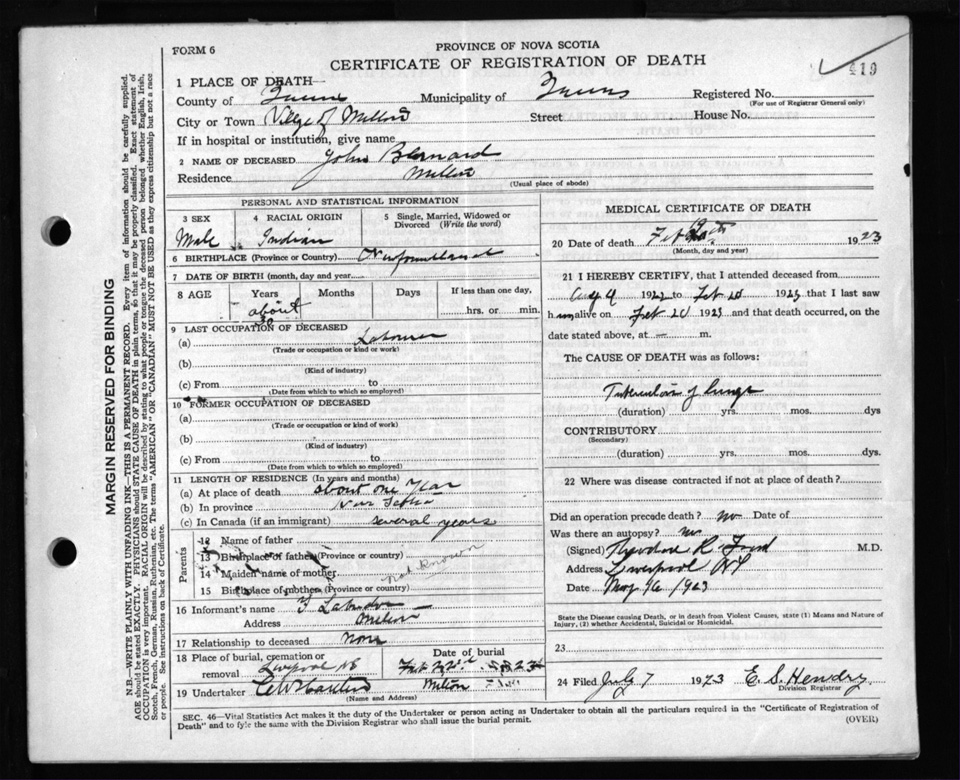 FORM 6
PROVINCE OF NOVA SCOTIA
CERTIFICATE OF REGISTRATION OF DEATH
19
1 PLACE OF DEATH—
County of Queens Municipality of Queens Registered No.
(For use of Registrar General only)
City or Town Village of Milton Street House No.
If in hospital or institution, give name
2 NAME OF DECEASED John Bernard
Residence Milton
(Usual place of abode)
MARGIN RESERVED FOR BINDING
N.B.—WRITE PLAINLY WITH UNFADING INK—THIS IS A PERMANENT RECORD. Every item of information should be carefully supplied.
AGE should be stated EXACTLY. PHYSICIANS should STATE CAUSE OF DEATH in plain terms, so that it may be properly classified. Exact statement of
OCCUPATION is very important. RACIAL ORIGIN will be described by stating to what people or tongue the deceased person belonged whether English, Irish,
Scotch, French, German, Russian, Ruthenian, etc. The terms "AMERICAN" OR "CANADIAN" MUST NOT BE USED as they express citizenship but not a race
or people. See instructions on back of Certificate.
PERSONAL AND STATISTICAL INFORMATION
3 SEX 4 RACIAL ORIGIN 5 Single, Married, Widowed or
Divorced (Write the word)
Male Indian
6 BIRTHPLACE (Province or Country) Newfoundland
7 DATE OF BIRTH (month, day and year)
8 AGE Years Months Days If less than one day,
about 30 hrs. or min.
9 LAST OCCUPATION OF DECEASED
(a) Labourer
(Trade or occupation or kind or work)
(b)
(Kind of industry)
(c) From to
(Date from which to which so employed)
10 FORMER OCCUPATION OF DECEASED
(a)
(Trade or occupation or kind of work)
(b)
(Kind of industry)
(c) From to
(Date from which to which so employed)
11 LENGTH OF RESIDENCE (In years and months)
(a) At place of death about one Year
(b) In province Nova Scotia
(c) In Canada (if an immigrant) several years
Parents
12 Name of father
13 Birthplace of father (Province or country)
14 Maiden name of mother
not Known
15 Birthplace of mother (Province or country)
16 Informant's name
Address Milton
17 Relationship to deceased none
18 Place of burial, cremation or
removal Liverpool NS
Date of burial
Feb 22nd 1923
19 Undertaker Milton
(Name and Address)
MEDICAL CERTIFICATE OF DEATH
20 Date of death Feb 1923
(Month, day and year)
21 I HEREBY CERTIFY, that I attended deceased from
Aug 9 1922 to Feb 20 1923 that I last saw
him alive on Feb 20 1923 and that death occurred, on
the date stated above, at — m.
The CAUSE OF DEATH was as follows:
Tuberculosis of lungs
(duration) yrs. mos. dys
CONTRIBUTORY
(Secondary)
(duration) yrs. mos. dys.
22 Where was disease contracted if not at place of death?
Did an operation precede death? no Date of
Was there an autopsy? no
(Signed) Theodore R Ford M.D.
Address Liverpool NS
Date May 16 1923
State the Disease causing Death, or in death from Violent Causes, state (1) Means and Nature of
Injury, (2) whether Accidental, Suicidal or Homicidal.
23
24 Filed 7 1923 E. S. Hendry
Division Registrar
SEC. 46—Vital Statistics Act makes it the duty of the Undertaker or person acting as Undertaker to obtain all the particulars required in the "Certificate of Registration of
Death" and to fyle the same with the Division Registrar who shall issue the burial permit.
(OVER)